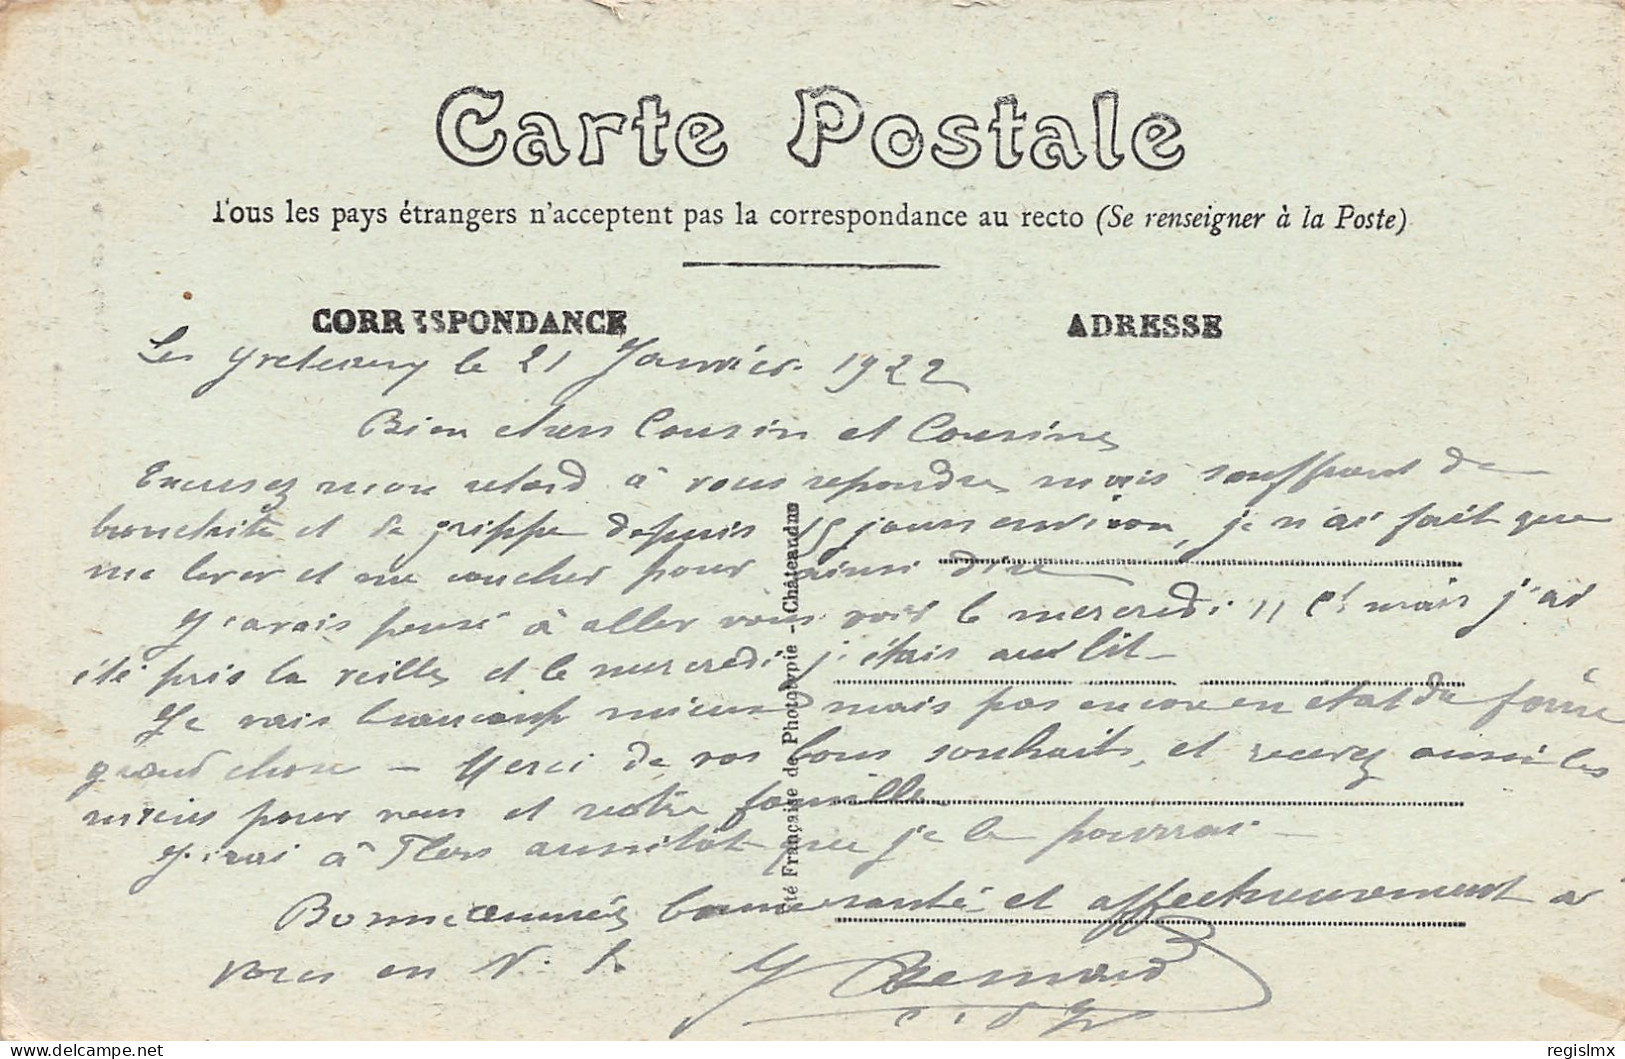 Carte Postale
Tous les pays étrangers n'acceptent pas la correspondance au recto (Se renseigner à la Poste)
CORRESPONDANCE
ADRESSE
le 21 Janvier 1922
Bien chers Cousin et Cousine
Excusez mon retard à vous repondre mais souffrant de
bronchite et de grippe depuis 15 jours environ, je n'ai fait que
me lever et me coucher pour ainsi dire
J'avais pensé à aller vous voir le mercredi 11 ct mais j'ai
été pris la veille et le mercredi j'étais au lit
Je vais beaucoup mieux mais pas encore en état de faire
grand chose - Merci de vos bons souhaits, et recevez aussi les
miens pour vous et votre famille
J'irai à Flers aussitôt que je le pourrai -
Bonne année bonne santé et affectueusement à
vous en N. S.
Sté Française de Phototypie - Châteaudun
regislmx
delcampe.net